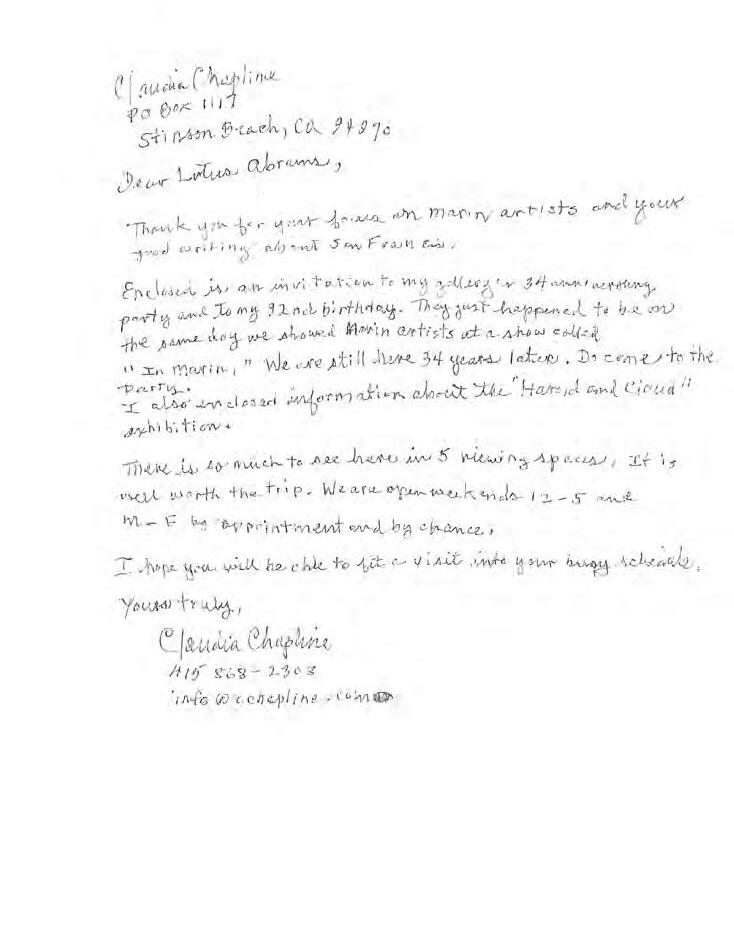 Claudia Chapline
PO Box 1117
Stinson Beach, CA 94970
Dear Lotus Abrams,
Thank you for your focus on Marin artists and your
good writing about San Francis.
Enclosed is an invitation to my gallery's 34 anniversary
party and to my 92nd birthday. They just happened to be on
the same day we showed Marin artists at a show called
"In Marin," We are still here 34 years later. Do come to the
party.
I also enclosed information about the "Harold and Cloud"
exhibition.
There is so much to see here in 5 viewing spaces, It is
well worth the trip. We are open weekends 12-5 and
M-F by appointment and by chance,
I hope you will be able to fit a visit into your busy schedule.
Yours truly,
Claudia Chapline
415 868-2308
info@cchapline.com